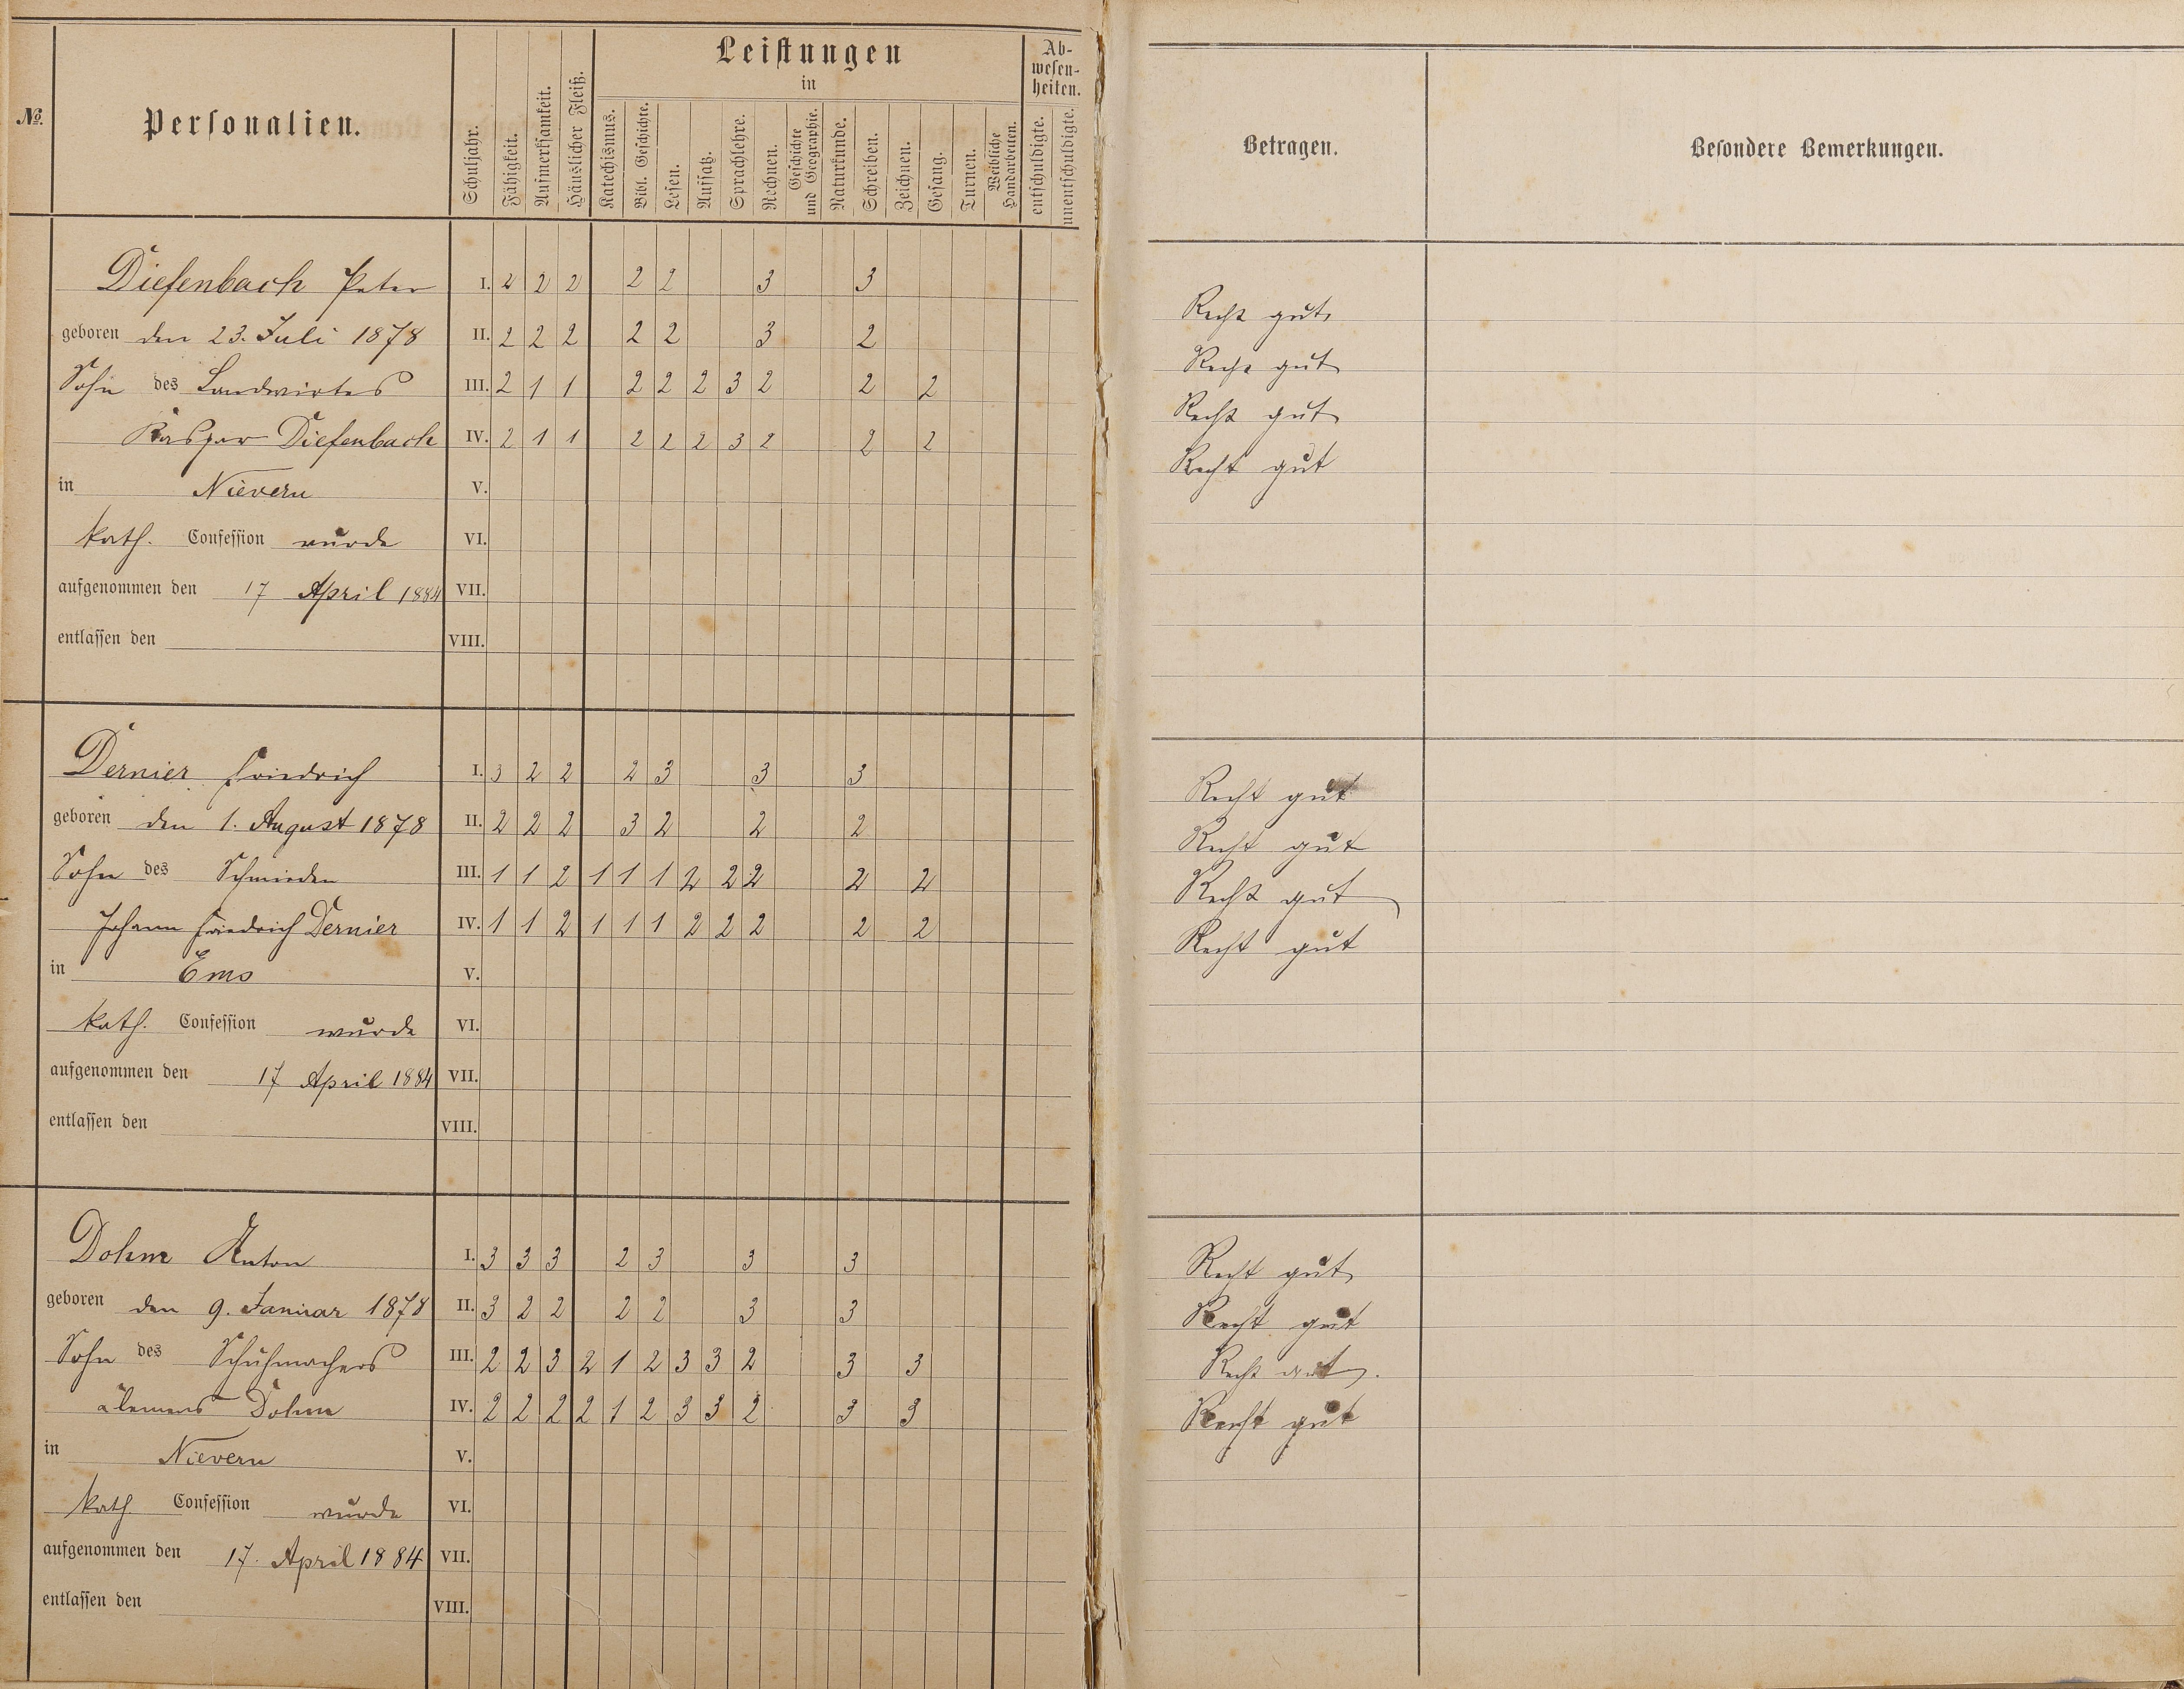 No. Personalien. Schuljahr. Fähigkeit. Aufmerksamkeit. Häuslicher Fleiß. Leistungen in Katechismus. Bibl. Geschichte. Lesen. Aufsatz. Sprachlehre. Rechnen. Geschichte und Geographie. Naturkunde. Schreiben. Zeichnen. Gesang. Turnen. Weibliche Handarbeiten. Abwesenheiten. entschuldigte. unentschuldigte. Betragen. Besondere Bemerkungen.
Diefenbach Peter I. 2 2 2 2 2 3 3 Recht gut
geboren den 23. Juli 1878 II. 2 2 2 2 2 3 2 Recht gut
Sohn des Landwirtes III. 2 1 1 2 2 2 3 2 2 2 Recht gut
Kaspar Diefenbach IV. 2 1 1 2 2 2 3 2 2 2 Recht gut
in Nievern V.
kath. Confession wurde VI.
aufgenommen den 17 April 1884 VII.
entlassen den VIII.
Dernier Friedrich I. 3 2 2 2 3 3 3 Recht gut
geboren den 1. August 1878 II. 2 2 2 3 2 2 2 Recht gut
Sohn des Schmieden III. 1 1 2 1 1 1 2 2 2 2 2 Recht gut
Johann Friedrich Dernier IV. 1 1 2 1 1 1 2 2 2 2 2 Recht gut
in Ems V.
kath. Confession wurde VI.
aufgenommen den 17 April 1884 VII.
entlassen den VIII.
Dohm Anton I. 3 3 3 2 3 3 3 Recht gut
geboren den 9. Januar 1878 II. 3 2 2 2 2 3 3 Recht gut
Sohn des Schuhmachers III. 2 2 3 2 1 2 3 3 2 3 3 Recht gut.
Clemens Dohm IV. 2 2 2 2 1 2 3 3 2 3 3 Recht gut
in Nievern V.
kath. Confession wurde VI.
aufgenommen den 17. April 1884 VII.
entlassen den VIII.